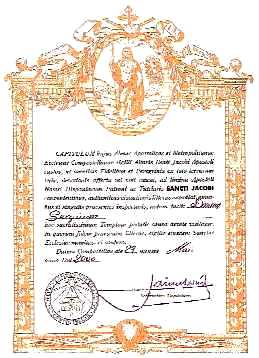 CAPITULUM hujus Almae Apostolicae et Metropolitanae
Ecclesiae Compostellanae sigilli Altaris Beati Jacobi Apostoli
custos, ut omnibus Fidelibus et Peregrinis ex toto terrarum
Orbe, devotionis affectu vel voti causa, ad limina Apostoli
Nostri Hispaniarum Patroni ac Tutelaris SANCTI JACOBI
convenientibus, authenticas visitationis litteras expediat, omni-
bus et singulis praesentes inspecturis, notum facit:
hoc sacratissimum Templum pietatis causa devote visitasse.
In quorum fidem praesentes litteras, sigillo ejusdem Sanctae
Ecclesiae munitas, ei confero.
Datum Compostellae die 29 mensis
anno Dni 2000